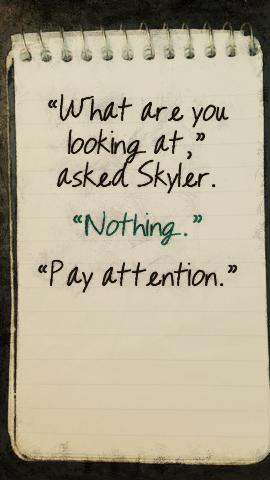 “What are you
looking at,”
asked Skyler.
“Nothing.”
“Pay attention.”